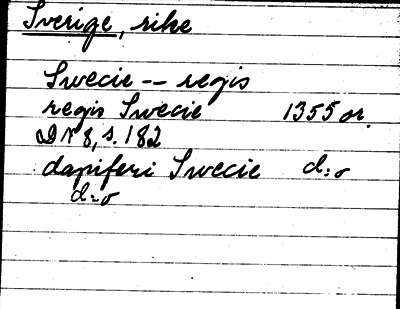 Sverige, rike
Swecie -- regis
regis Swecie 1355 or.
DN 8, s. 182
dapiferi Swecie d:o
d:o